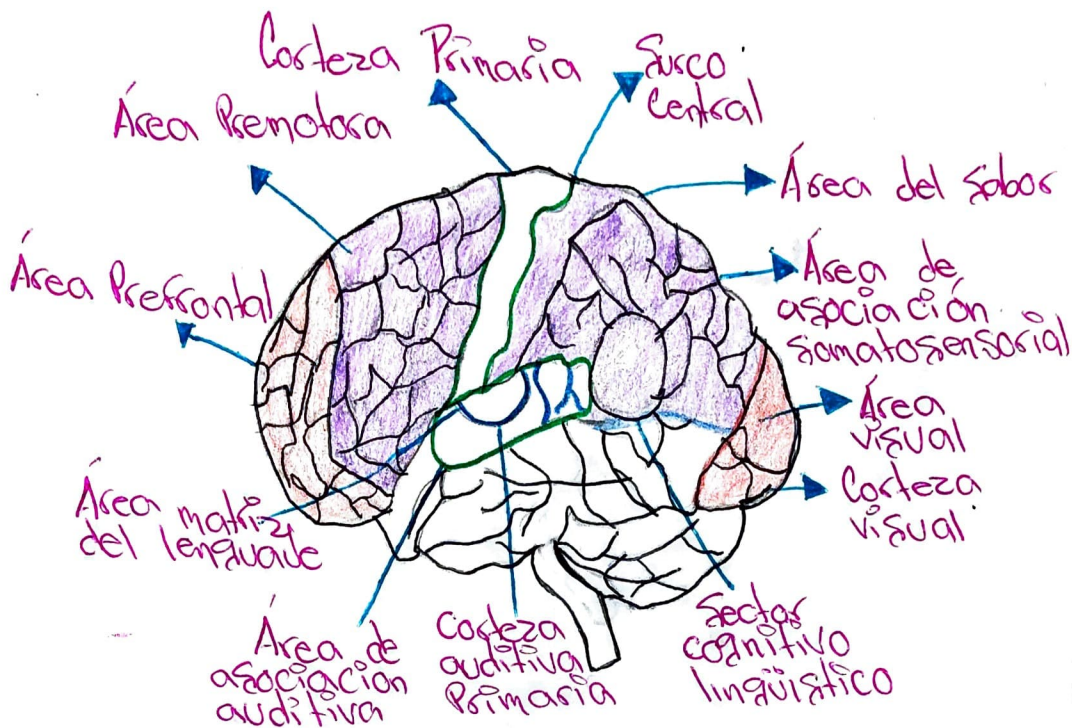 Corteza Primaria
Surco
Central
Área Premotora
Área del sabor
Área Prefrontal
Área de
asociación
somatosensorial
Área
visual
Corteza
visual
Área matriz
del lenguaje
Área de
asociación
auditiva
Corteza
auditiva
Primaria
Sector
cognitivo
lingüístico